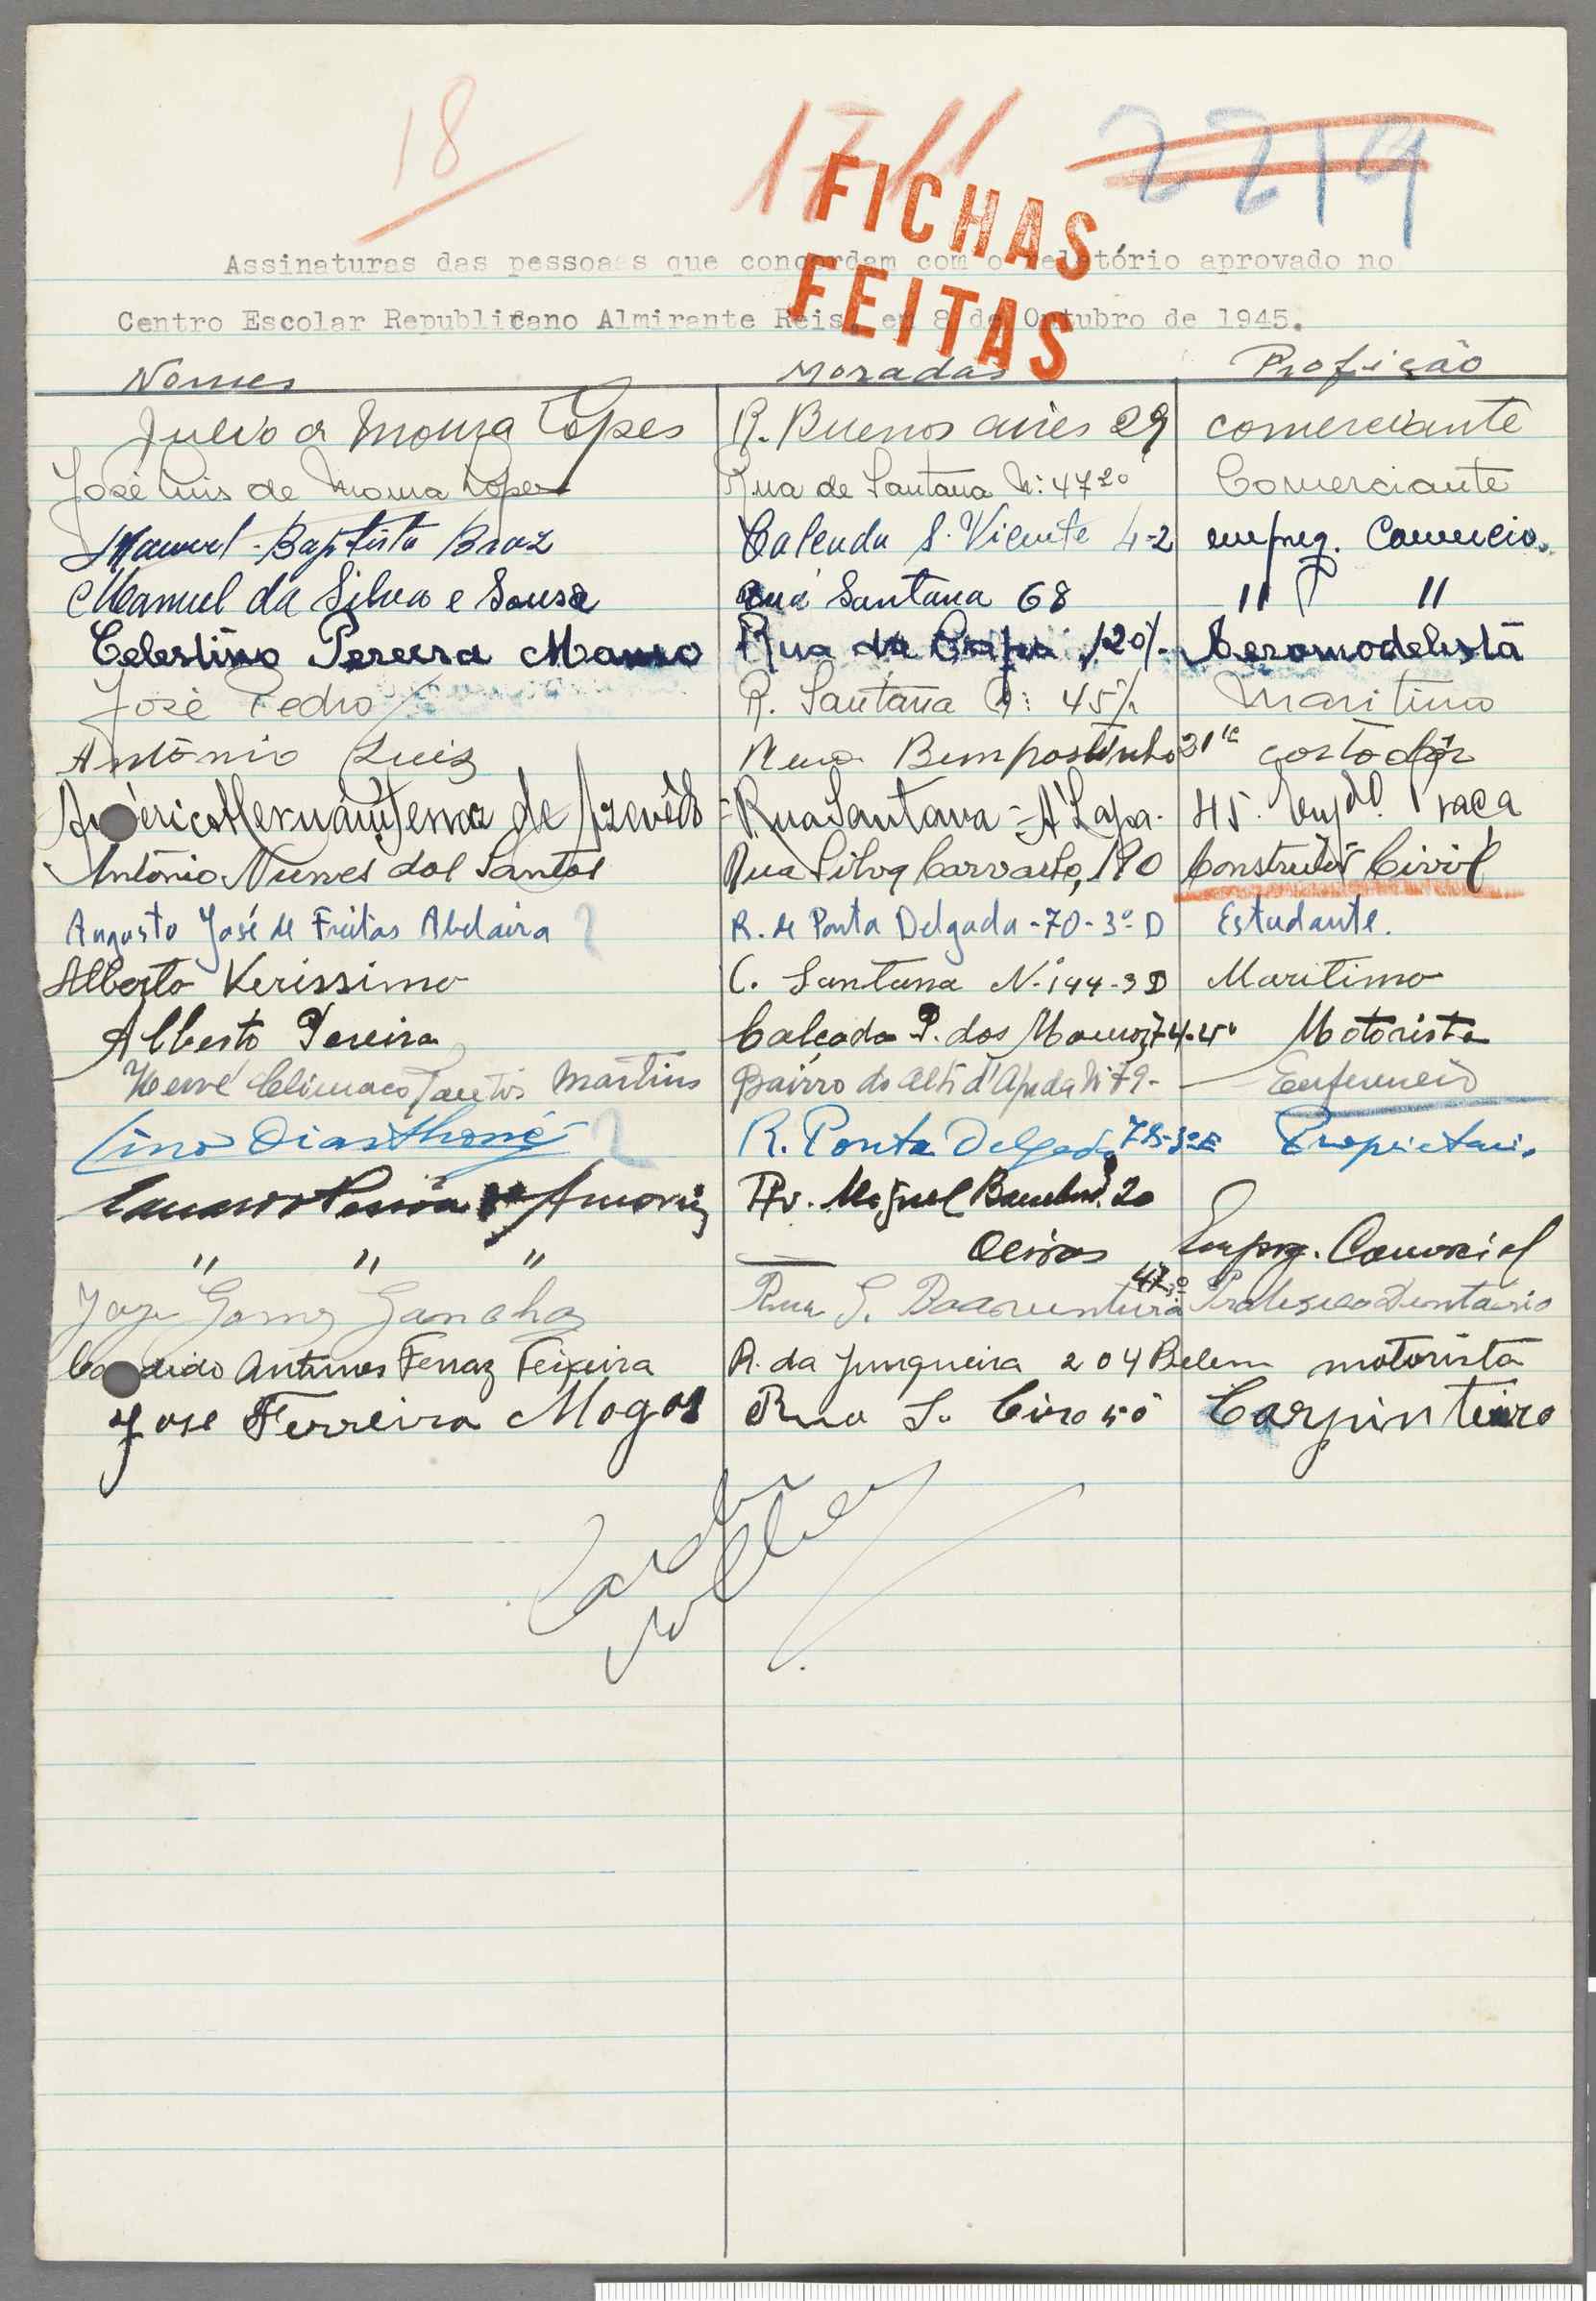 18
17/1
2219
FICHAS
FEITAS
Assinaturas das pessoas que concordam com o relatório aprovado no
Centro Escolar Republicano Almirante Reis, em 8 de Outubro de 1945.
Nomes Moradas Profição
Julio de Moura Lopes R. Buenos aires 29 comerciante
José Luis de Moura Lopes Rua de Santana Nº 47 2º Comerciante
Manuel Baptista Braz Calçada S. Vicente 4-2 empreg. Comercio.
Manuel da Silva e Sousa Rua Santana 68 " "
Celestino Pereira Rua da 120 Aeromodelista
José Pedro R. Santana Nº 45 Maritimo
António Luiz
de Azevêdo = Rua Santana = Á Lapa - 45
António Nunes dos Santos Rua Silva Carvalho, 190 Construtor Civil
Augusto José de Freitas Abelaira ? R. de Ponta Delgada - 70 - 3º D Estudante.
Alberto Verissimo C. Santana Nº 144-3 D Maritimo
Alberto Pereira Calçada P. dos Motorista
Climaco Santos Martins Bairro do Alto d'Ajuda Nº 79 - Enfermeiro
Lino Dias Thomé ? R. Ponta Delgada 78-3º E Proprietario
Amorim Av. Miguel Bombarda 20
" " " Oeiras Empreg. Comercial
47
José Gomes Rua S. Boaventura Dentário
Candido Antunes Ferraz Teixeira R. da Junqueira 204 Belem motorista
José Ferreira Mogos Rua S. Ciro 50 Carpinteiro